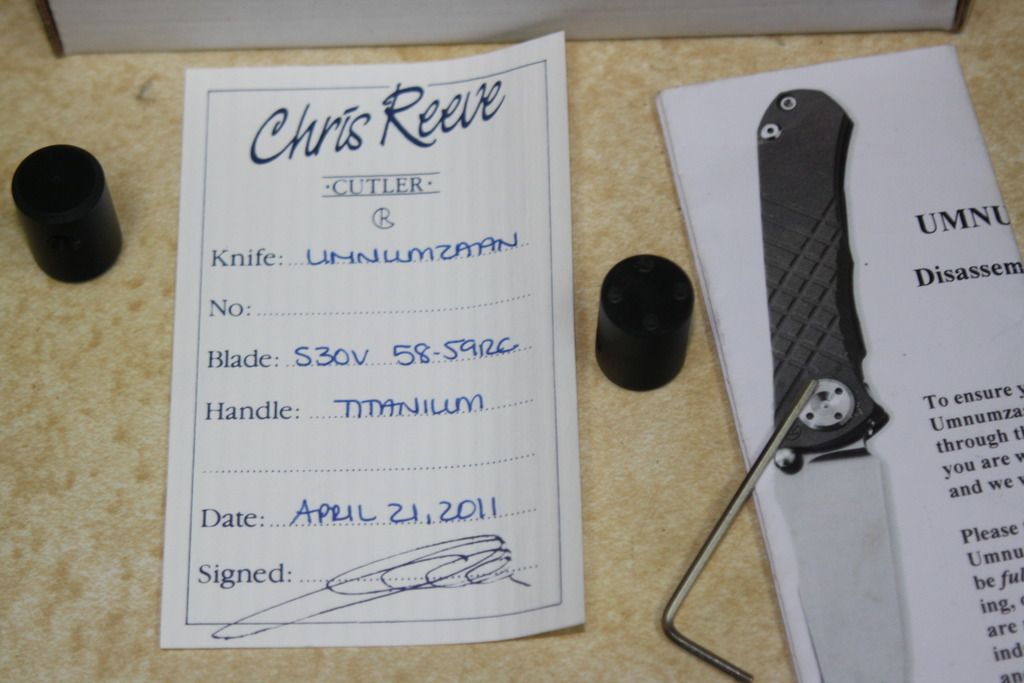 Chris Reeve
·CUTLER·
R
Knife: UMNUMZAAN
No:
Blade: S30V 58-59RC
Handle: TITANIUM
Date: APRIL 21, 2011
Signed:
UMNU
Disassem
To ensure y
Umnumza
through th
you are w
and we v
Please
Umnu
be ful
ing,
are
ind
an